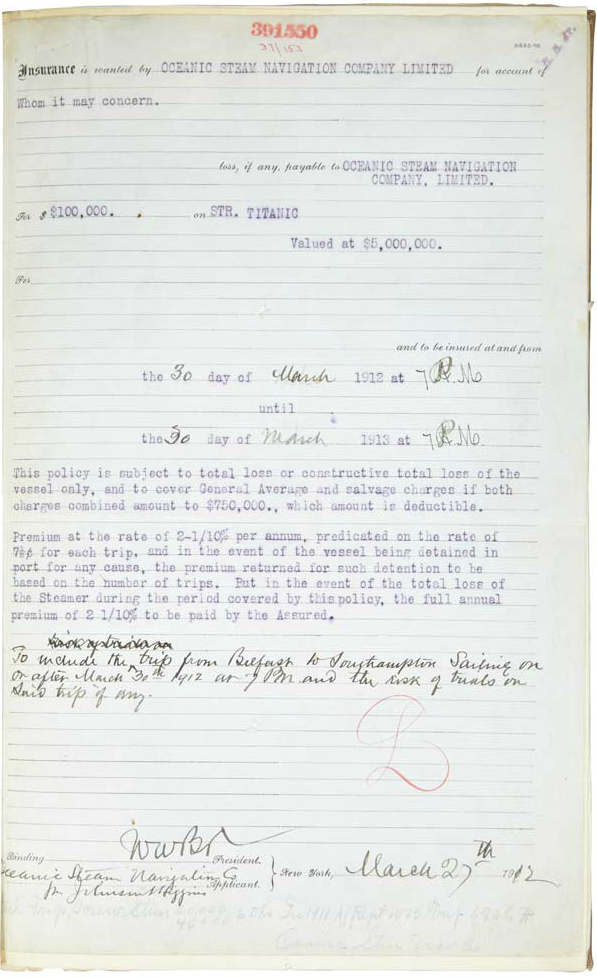 391550
37/153
Insurance is wanted by OCEANIC STEAM NAVIGATION COMPANY LIMITED for account of
Whom it may concern.
loss, if any, payable to OCEANIC STEAM NAVIGATION
COMPANY, LIMITED.
For $ $100,000. on STR. TITANIC
Valued at $5,000,000.
For
and to be insured at and from
the 30 day of March 1912 at 7 P.M
until
the 30 day of March 1913 at 7 P.M.
This policy is subject to total loss or constructive total loss of the
vessel only, and to cover General Average and salvage charges if both
charges combined amount to $750,000., which amount is deductible.
Premium at the rate of 2-1/10% per annum, predicated on the rate of
for each trip, and in the event of the vessel being detained in
port for any cause, the premium returned for such detention to be
based on the number of trips. But in the event of the total loss of
the Steamer during the period covered by this policy, the full annual
premium of 2 1/10% to be paid by the Assured.
To include the trip from Belfast to Southampton Sailing on
or after March 30th 1912 at 7 PM and the risk of trials on
said trip if any.
Binding President.
Oceanic Steam Navigation Co Applicant. New York, March 27th 1912
Johnson & Higgins